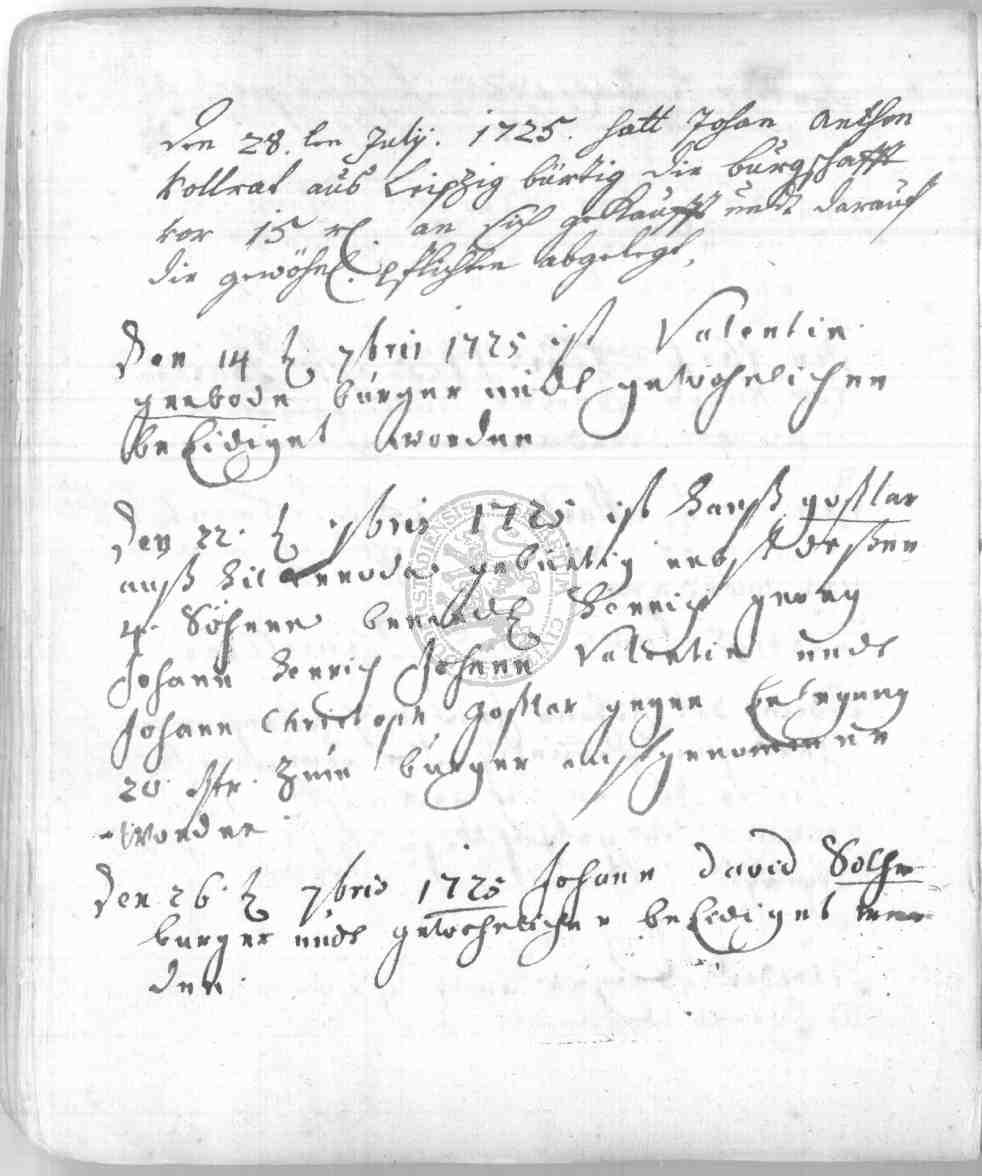 Den 28. ten Julij. 1725. hatt Johan Anthon
Vollrat aus Leipzig bürtig die bürgschafft
vor 15 rl. an sich gekaufft undt darauf
die gewöhnl. pflichten abgelegt,
Den 14 t 7bris 1725 ist Valentin
greebode bürger undt gewohnlichen
beEidiget worden
Den 22. t 7bris 1725 ist Hanß goßlar
auß gebürtig nebst deßen
4. Söhnen benendl Henrich georg
Johann Henrich Johann Valentin undt
Johann Christoph goßlar gegen Erlegung
20 rthr. zum bürger auffgenommen
worden
Den 26. t 7bris 1725 Johann David
burger undt gewohnlicher beEidiget wor
den.